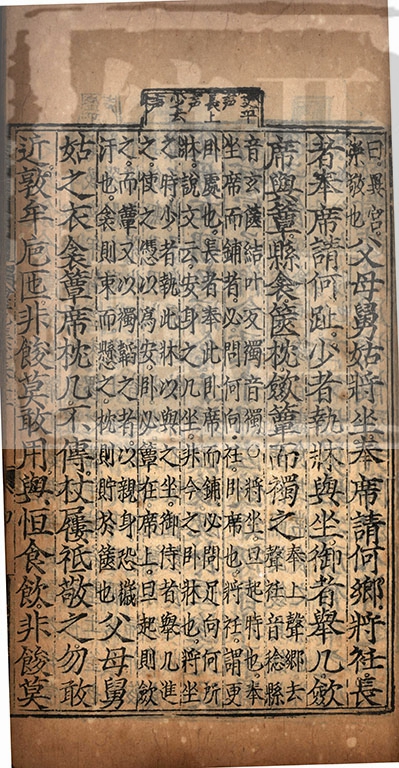 更平聲
長上聲
少去聲
曰異宮
崇敬也父母舅姑將坐奉席請何鄉將衽長
者奉席請何趾少者執牀與坐御者舉几斂
席與簟縣衾篋枕斂簟而襡之奉上聲鄉去
聲衽音稔縣
音玄篋結叶反襡音獨○將坐旦起時也奉
坐席而鋪者必問何向衽臥席也將衽謂更
臥處也長者奉此臥席而鋪必問足向何所
牀說文云安身之几坐非今之臥牀也將坐
之時少者執此牀以與之坐御侍者舉几進
之使之憑以為安臥必簟在席上旦起則斂
之而簟又以襡韜之者以親身恐穢
汙也衾則束而懸之枕則貯於篋也父母舅
姑之衣衾簟席枕几不傳杖屨祗敬之勿敢
近敦牟卮匜非餕莫敢用與恒食飲非餕莫